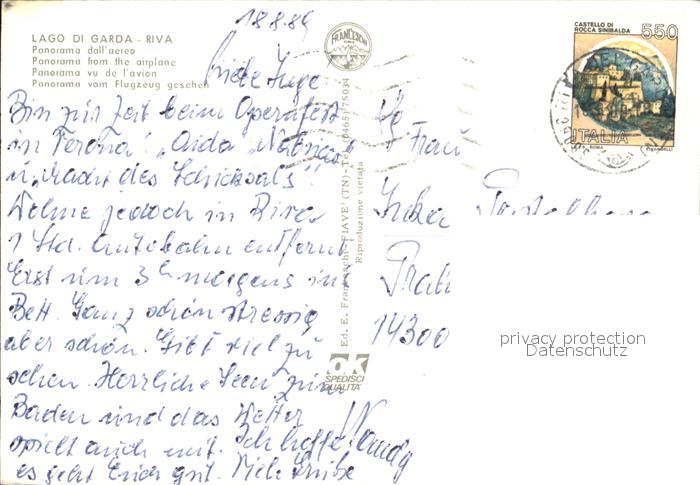 18.8.89
LAGO DI GARDA - RIVA
Panorama dall'aereo
Panorama from the airplane
Panorama vu de l'avion
Panorama vom Flugzeug gesehen
FRANCESCHI
CASTELLO DI
ROCCA SINIBALDA
550
ITALIA
ROMA
Liebe Inge
Bin zur Zeit beim Opernfest
in Verona! "Aida" "Nabucco"
u. "Macht des Schicksals"!
Wohne jedoch in Riva
1 Std. Autobahn entfernt
Erst um 3h morgens im
Bett. Ganz schön stressig
aber schön. Gibt viel zu
sehen. Herrliche Seen zum
Baden und das Wetter
spielt auch mit. Ich hoffe
es geht Euch gut. Viele Grüße
Frau
14300
Ed. E. Franceschi - FIAVE' (TN) - Tel. (0465) 75034
Riproduzione vietata
OK
SPEDISCI
QUALITA'
privacy protection
Datenschutz